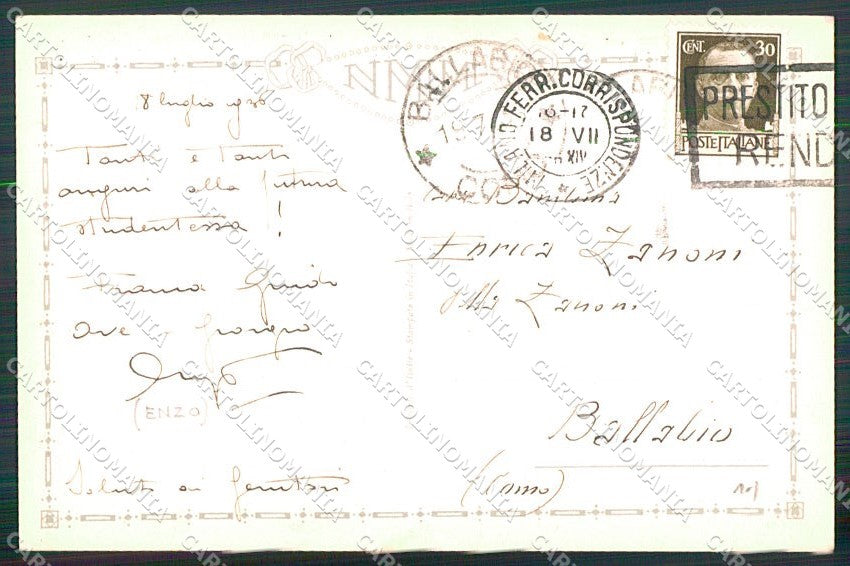 8 luglio 936
Tanti e tanti
auguri alla futura
studentessa!
Franca Guido
Ave Giorgio
Enzo
(ENZO)
Saluti ai Genitori
BALLABIO
COMO
MILANO FERR. CORRISPONDENZE
16-17
18 VII
XIV
CENT. 30
POSTE ITALIANE
PRESTITO
REND
Enrica Zanoni
Villa Zanoni
Ballabio
(Como)
CARTOLINOMANIA